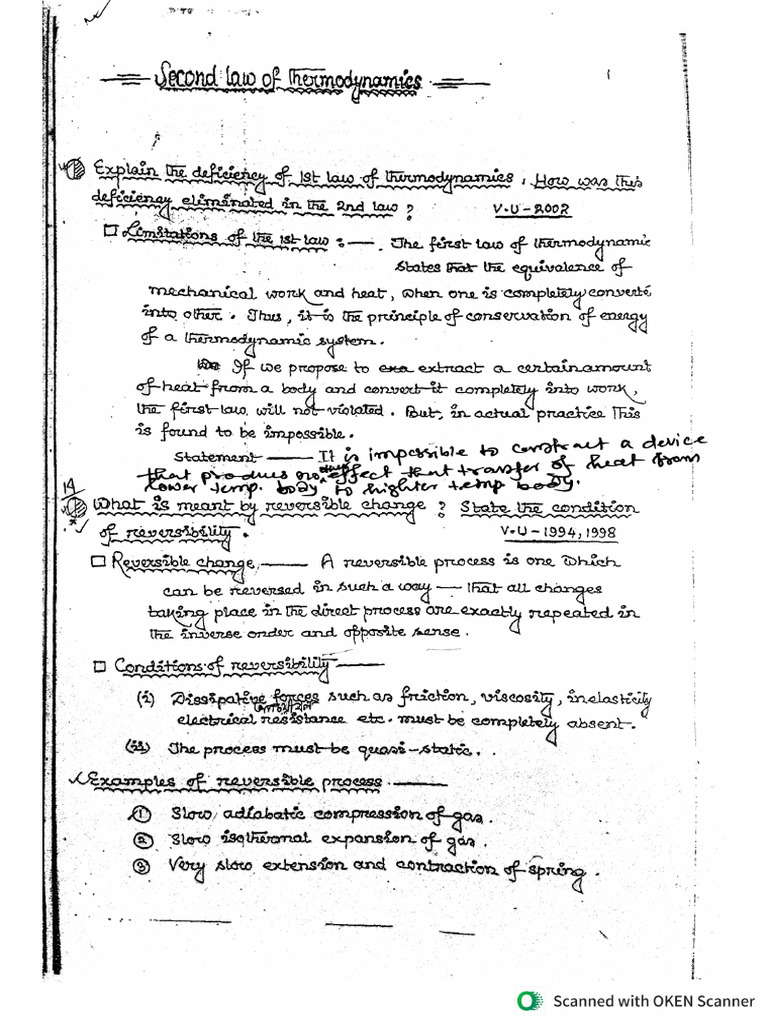 Second law of Thermodynamics
1
Explain the deficiency of 1st law of thermodynamics. How was this
deficiency eliminated in the 2nd law? V.U-2002
Limitations of the 1st law:— The first law of thermodynamic
states that the equivalence of
mechanical work and heat, when one is completely converte
into other. Thus, it is the principle of conservation of energy
of a thermodynamic system.
If we propose to extract a certain amount
of heat from a body and convert it completely into work,
the first law will not violated. But, in actual practice this
is found to be impossible.
Statement — It is impossible to construct a device
that produce no other effect that transfer of heat from
lower temp. body to highter temp body.
What is meant by reversible change? State the condition
of reversibility. V.U-1994, 1998
Reversible change,— A reversible process is one which
can be reversed in such a way — that all changes
taking place in the direct process are exactly repeated in
the inverse order and opposite sense.
Conditions of reversibility —
(i) Dissipative forces such as friction, viscosity, inelasticity
electrical resistance etc. must be completely absent.
(ii) The process must be quasi-static.
Examples of reversible process —
① Slow, adiabatic compression of gas.
② Slow isothermal expansion of gas.
③ Very slow extension and contraction of spring.
Scanned with OKEN Scanner